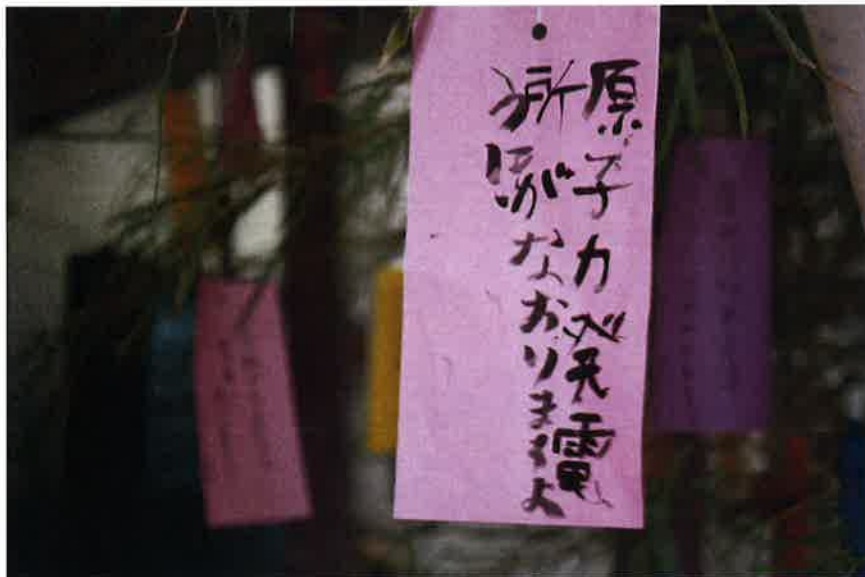 原子力発電
所がなおりますよ
うに